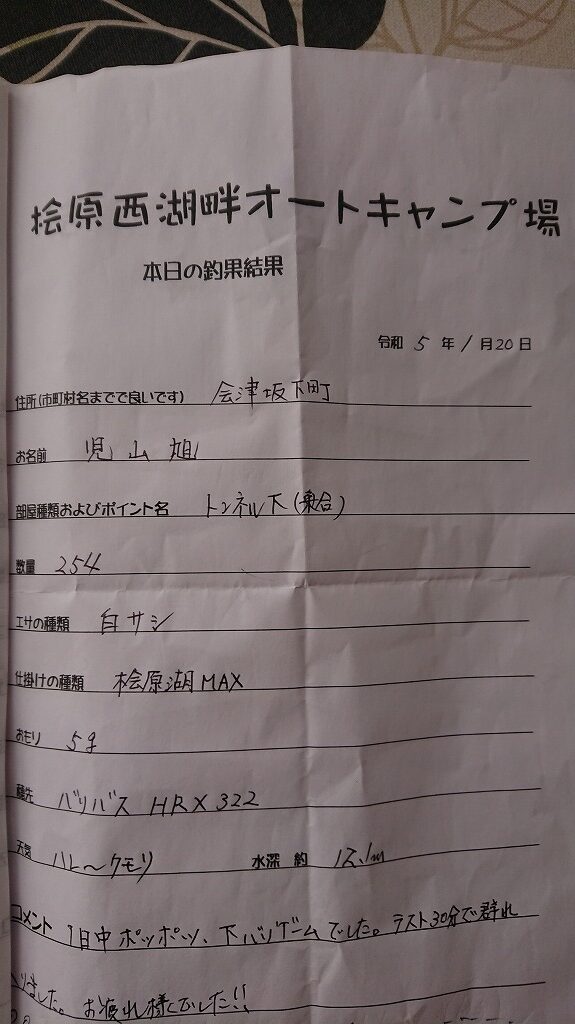 桧原西湖畔オートキャンプ場
本日の釣果結果
令和 5 年 1 月 20 日
住所(市町村名までで良いです) 会津坂下町
お名前 児山 旭
部屋種類およびポイント名 トンネル下(乗合)
数量 254
エサの種類 白サシ
仕掛けの種類 桧原湖MAX
おもり 5g
穂先 バリバス HRX 322
天気 ハレ～クモリ 水深 約 12.1m
コメント 1日中 ポツポツ、下バリゲームでした。ラスト30分で群れ
入りました。お疲れ様でした!!